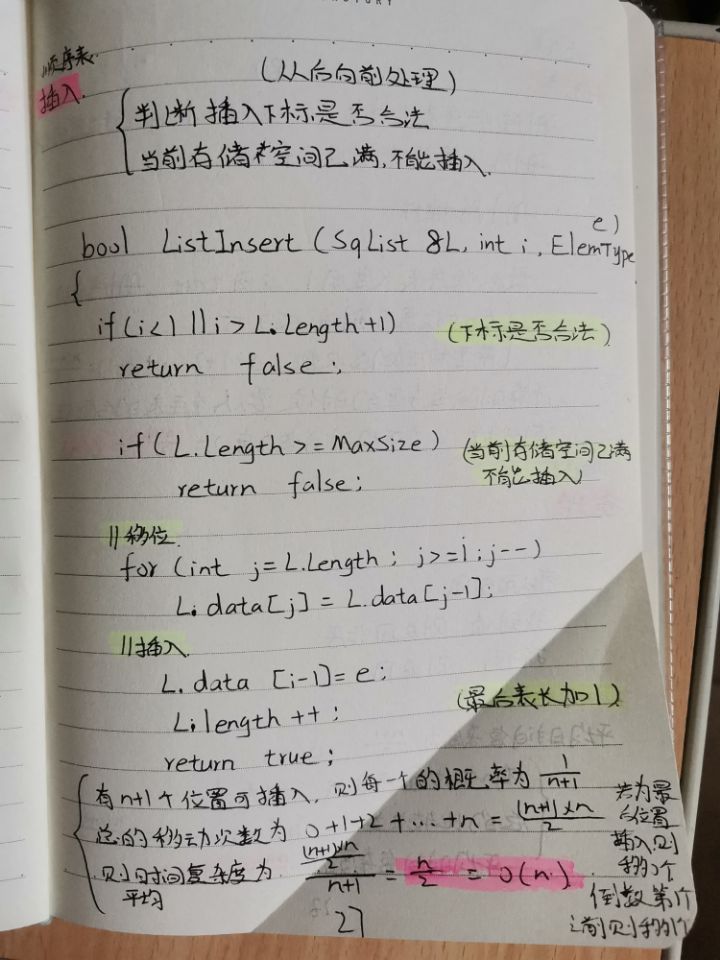 //顺序表
插入.
(从后向前处理)
判断插入下标是否合法
当前存储空间已满,不能插入.
bool ListInsert (SqList &L, int i, ElemType e)
{
if(i<1 || i > L.Length+1)
(下标是否合法)
return false;
if(L.Length >= MaxSize)
(当前存储空间已满
不能插入)
return false;
//移位
for (int j=L.Length; j>=i; j--)
L.data[j] = L.data[j-1];
//插入
L.data [i-1]=e;
(最后表长加1)
L.length ++;
return true;
有n+1个位置可插入, 则每一个的概率为 1/(n+1)
总的移动次数为 0+1+2+…+n = (n+1)×n/2
则平均时间复杂度为 ((n+1)×n/2)/(n+1) = n/2 = O(n).
若为最
后位置
插入则
移0个
倒数第1个
之前则移1个
27